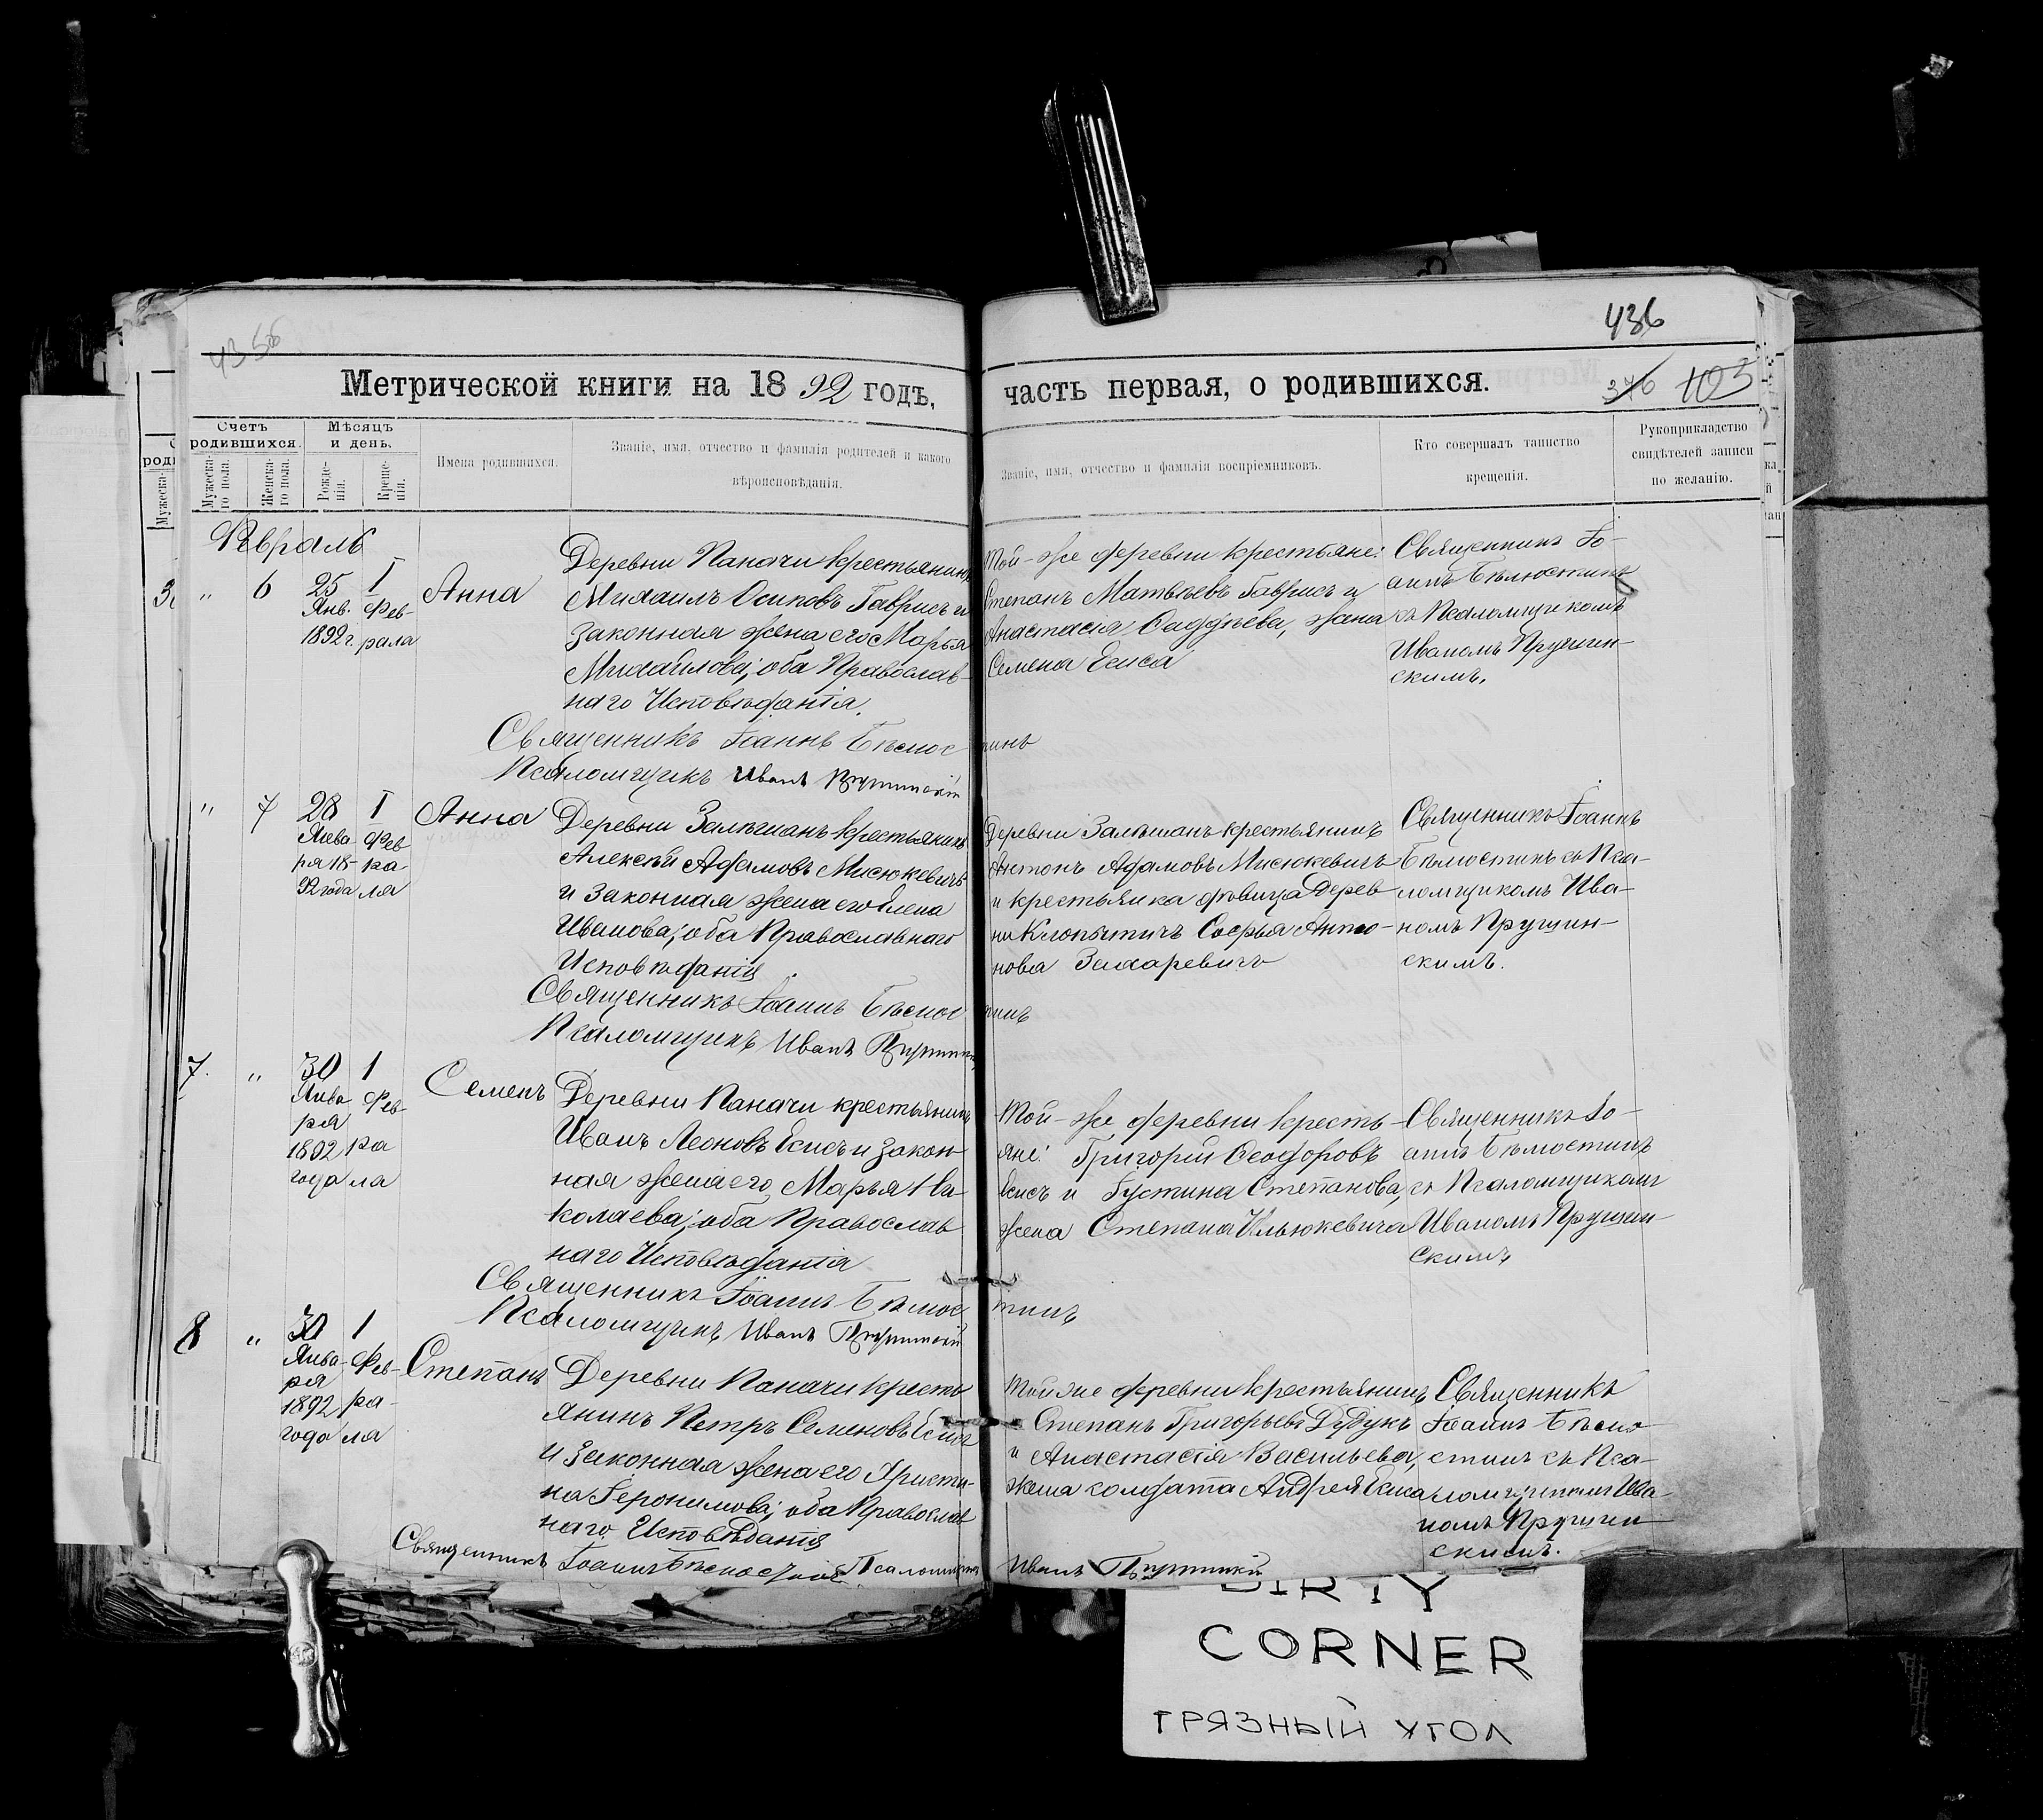 436
Метрической книги на 1892 годъ,
часть первая, о родившихся.
376 103
Счетъ родившихся.
Мужеска-го пола.
Женска-го пола.
Мѣсяцъ и день.
Рожде-нія.
Креще-нія.
Имена родившихся.
Званіе, имя, отчество и фамилія родителей и какого
вѣроисповѣданія.
Званіе, имя, отчество и фамилія воспріемниковъ.
Кто совершалъ таинство
крещенія.
Рукоприкладство
свидѣтелей записи
по желанію.
Февраль
" 6
25 Янв. 1892 г.
1 Фев-рала
Анна
Деревни Паначи крестьянинъ
Михаилъ Осиповъ Гаврисъ и
законная жена его Марья
Михайлова; оба Православ-
наго Исповѣданія.
Той-же деревни крестьяне:
Степанъ Матвѣевъ Гаврисъ и
Анастасія Фаддѣева, жена
Семена Есиса
Священникъ Іо-
аннъ Бѣлюстинъ
съ Псаломщикомъ
Иваномъ Пружин-
скимъ.
Священникъ Іоаннъ Бѣлюс тинъ
Псаломщикъ Иванъ
" 7
28 Янва-ря 18-92 года
1 Фев-ра-ля
Анна
Деревни крестьянинъ
Алексѣй Адамовъ Мисюкевичъ
и законная жена его Елена
Иванова; оба Православнаго
Исповѣданія.
Деревни крестьянинъ
Антонъ Адамовъ Мисюкевичъ
и крестьянка дѣвица Дерев-
ни Софья Анто-
нова Захаревичъ
Священникъ Іоаннъ
Бѣлюстинъ съ Пса-
ломщикомъ Ива-
номъ Пружин-
скимъ.
Священникъ Іоаннъ Бѣлюс тинъ
Псаломщикъ Иванъ
7. "
30 Янва-ря 1892 года
1 Фев-ра-ла
Семенъ
Деревни Паначи крестьянинъ
Иванъ Леоновъ Есисъ и закон-
ная жена его Марья Ни-
колаева; оба Православ-
наго Исповѣданія
Той-же деревни кресть-
яне: Григорій Феодоровъ
Есисъ и Густина Степанова,
жена Степана Илькевича
Священникъ Іо-
аннъ Бѣлюстинъ
съ Псаломщикомъ
Иваномъ Пружин-
скимъ
Священникъ Іоаннъ Бѣлюс тинъ
Псаломщикъ Иванъ
8 "
30 Янва-ря 1892 года
1 Фев-ра-ля
Степанъ
Деревни Паначи кресть
янинъ Петръ Семеновъ Есисъ
и законная жена его Христи-
на Іеронимова; оба Православ
наго Исповѣданія
Той же деревни крестьянинъ
Степанъ Григорьевъ Дудукъ
и Анастасія Васильева,
жена солдата Андрея Есиса
Священникъ
Іоаннъ Бѣлю-
стинъ съ Пса-
ломщикомъ Ива-
номъ Пружин-
скимъ.
Священникъ Іоаннъ Бѣлюстинъ Псаломщикъ
Иванъ
DIRTY
CORNER
ГРЯЗНЫЙ УГОЛ